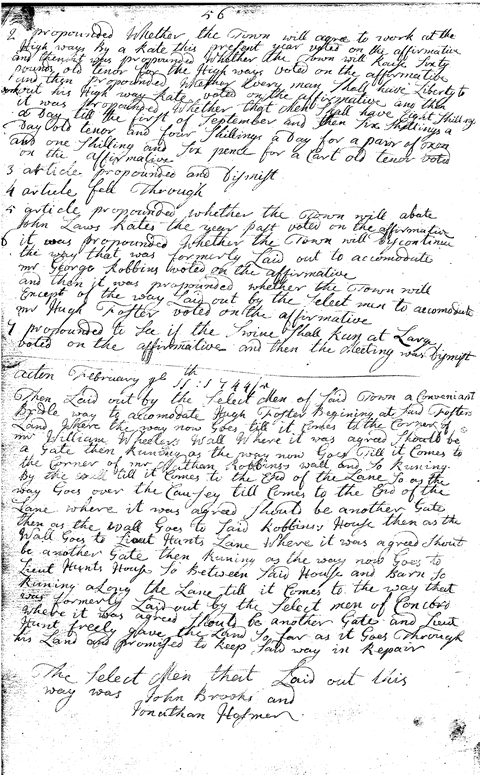 56
2 propounded Whether the Town will agree to work at the
High ways By a Rate this present year voted on the affirmative
and then it was propounded Whether the Town will Raise Sixty
pounds old tenor for the High ways voted on the affirmative
and then propounded Whether Every man Shall have Liberty to
work out his High way Rate voted on the affirmative and then
it was propounded Whether that men Shall have Eight Shillings
a Day till the first of September and then Six Shillings a
Day old tenor and four Shillings a Day for a pair of oxen
and one Shilling and Six pence for a Cart old tenor voted
on the affirmative
3 article propounded and Dismist
4 article fell Through
5 article propounded whether the Town will abate
John Laws Rates the year past voted on the affirmative
6 it was propounded Whether the Town will Discontinue
the way that was formerly Laid out to accomodate
mr George Robbins voted on the affirmative
and then it was propounded whether the Town will
Except of the way Laid out by the Select men to accomodate
mr Hugh Foster voted on the affirmative
7 propounded to See if the Swine Shall Run at Larg
voted on the affirmative and then the meeting was Dismist
acton February ye 11th : 1744/5
Then Laid out by the Select Men of Said Town a Conveniant
Bridle way to accomodate Hugh Foster Begining at Said Fosters
Land Where the way now Goes till it Comes to the Corner of
mr William Wheelers Wall Where it was agreed Should be
a Gate then Runing as the way now Goes Till it Comes to
the Corner of mr Nathan Robbins wall and So Runing
By the wall till it Comes to the End of the Lane So as the
way Goes over the Causey till Comes to the End of the
Lane where it was agreed Shout be another Gate
then as the Wall Goes to Said Robbins House then as the
Wall Goes to Lieut Hunts Lane Where it was agreed Shout
be another Gate then Runing as the way now Goes to
Lieut Hunts House So Between Said House and Barn So
Runing along the Lane till it Comes to the way that
was formerly Laid out by the Select men of Concord
Where it was agreed Shout be another Gate and Lieut
Hunt freely Gave the Land So far as it Goes Through
his Land and promised to keep Said way in Repair
The Select Men that Laid out this
way was John Brooks and
Jonathan Hosmer